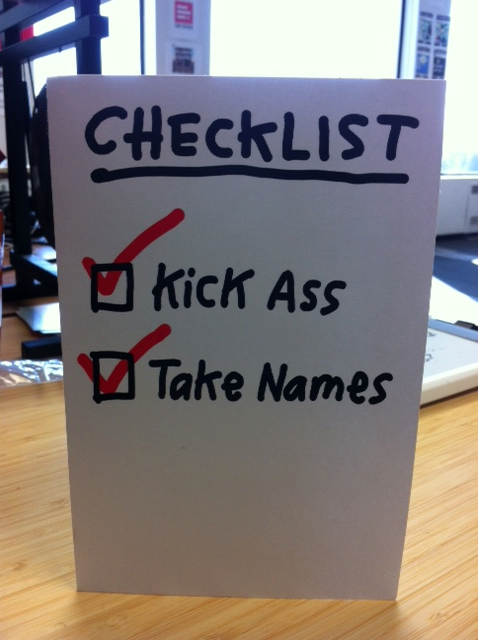 CHECKLIST
Kick Ass
Take Names